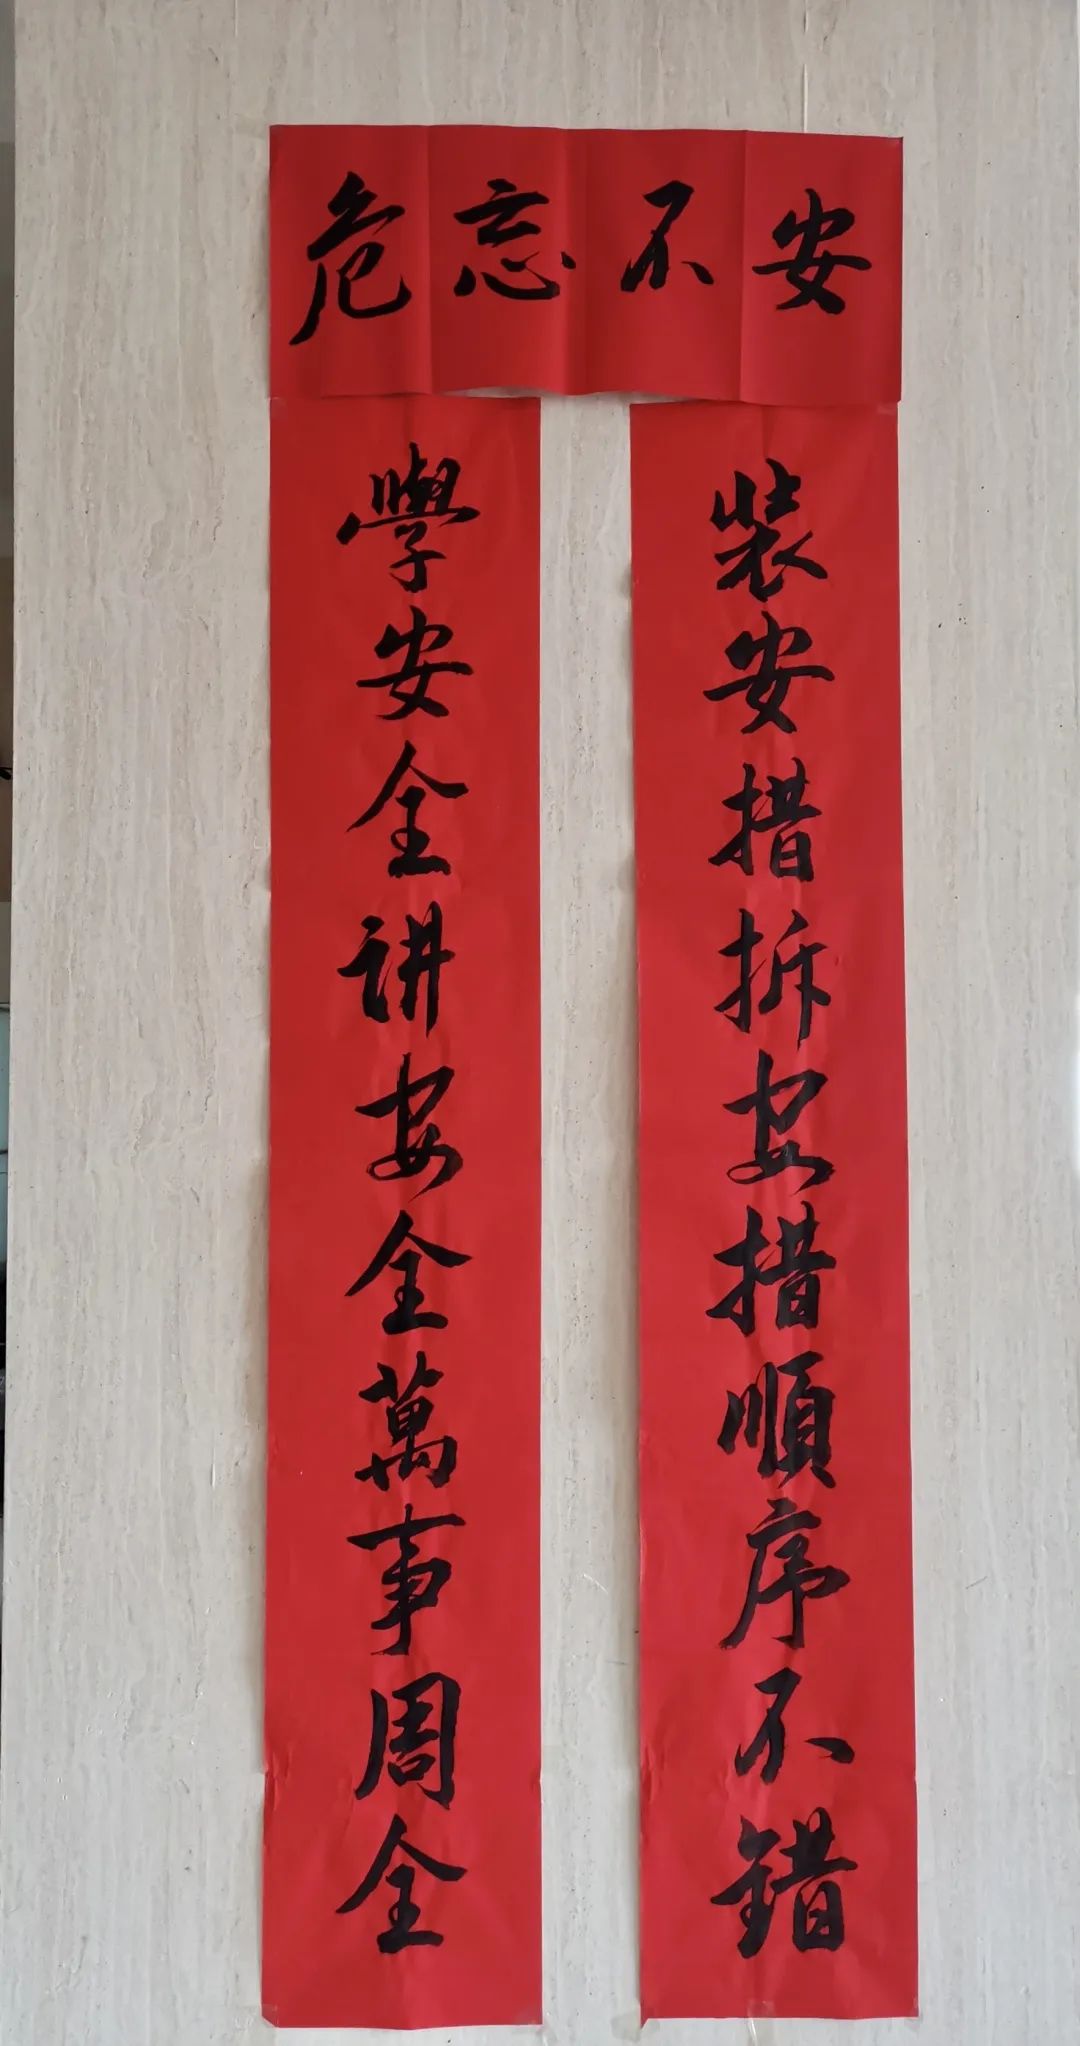 安不忘危
装安措拆安措順序不錯
學安全讲安全萬事周全